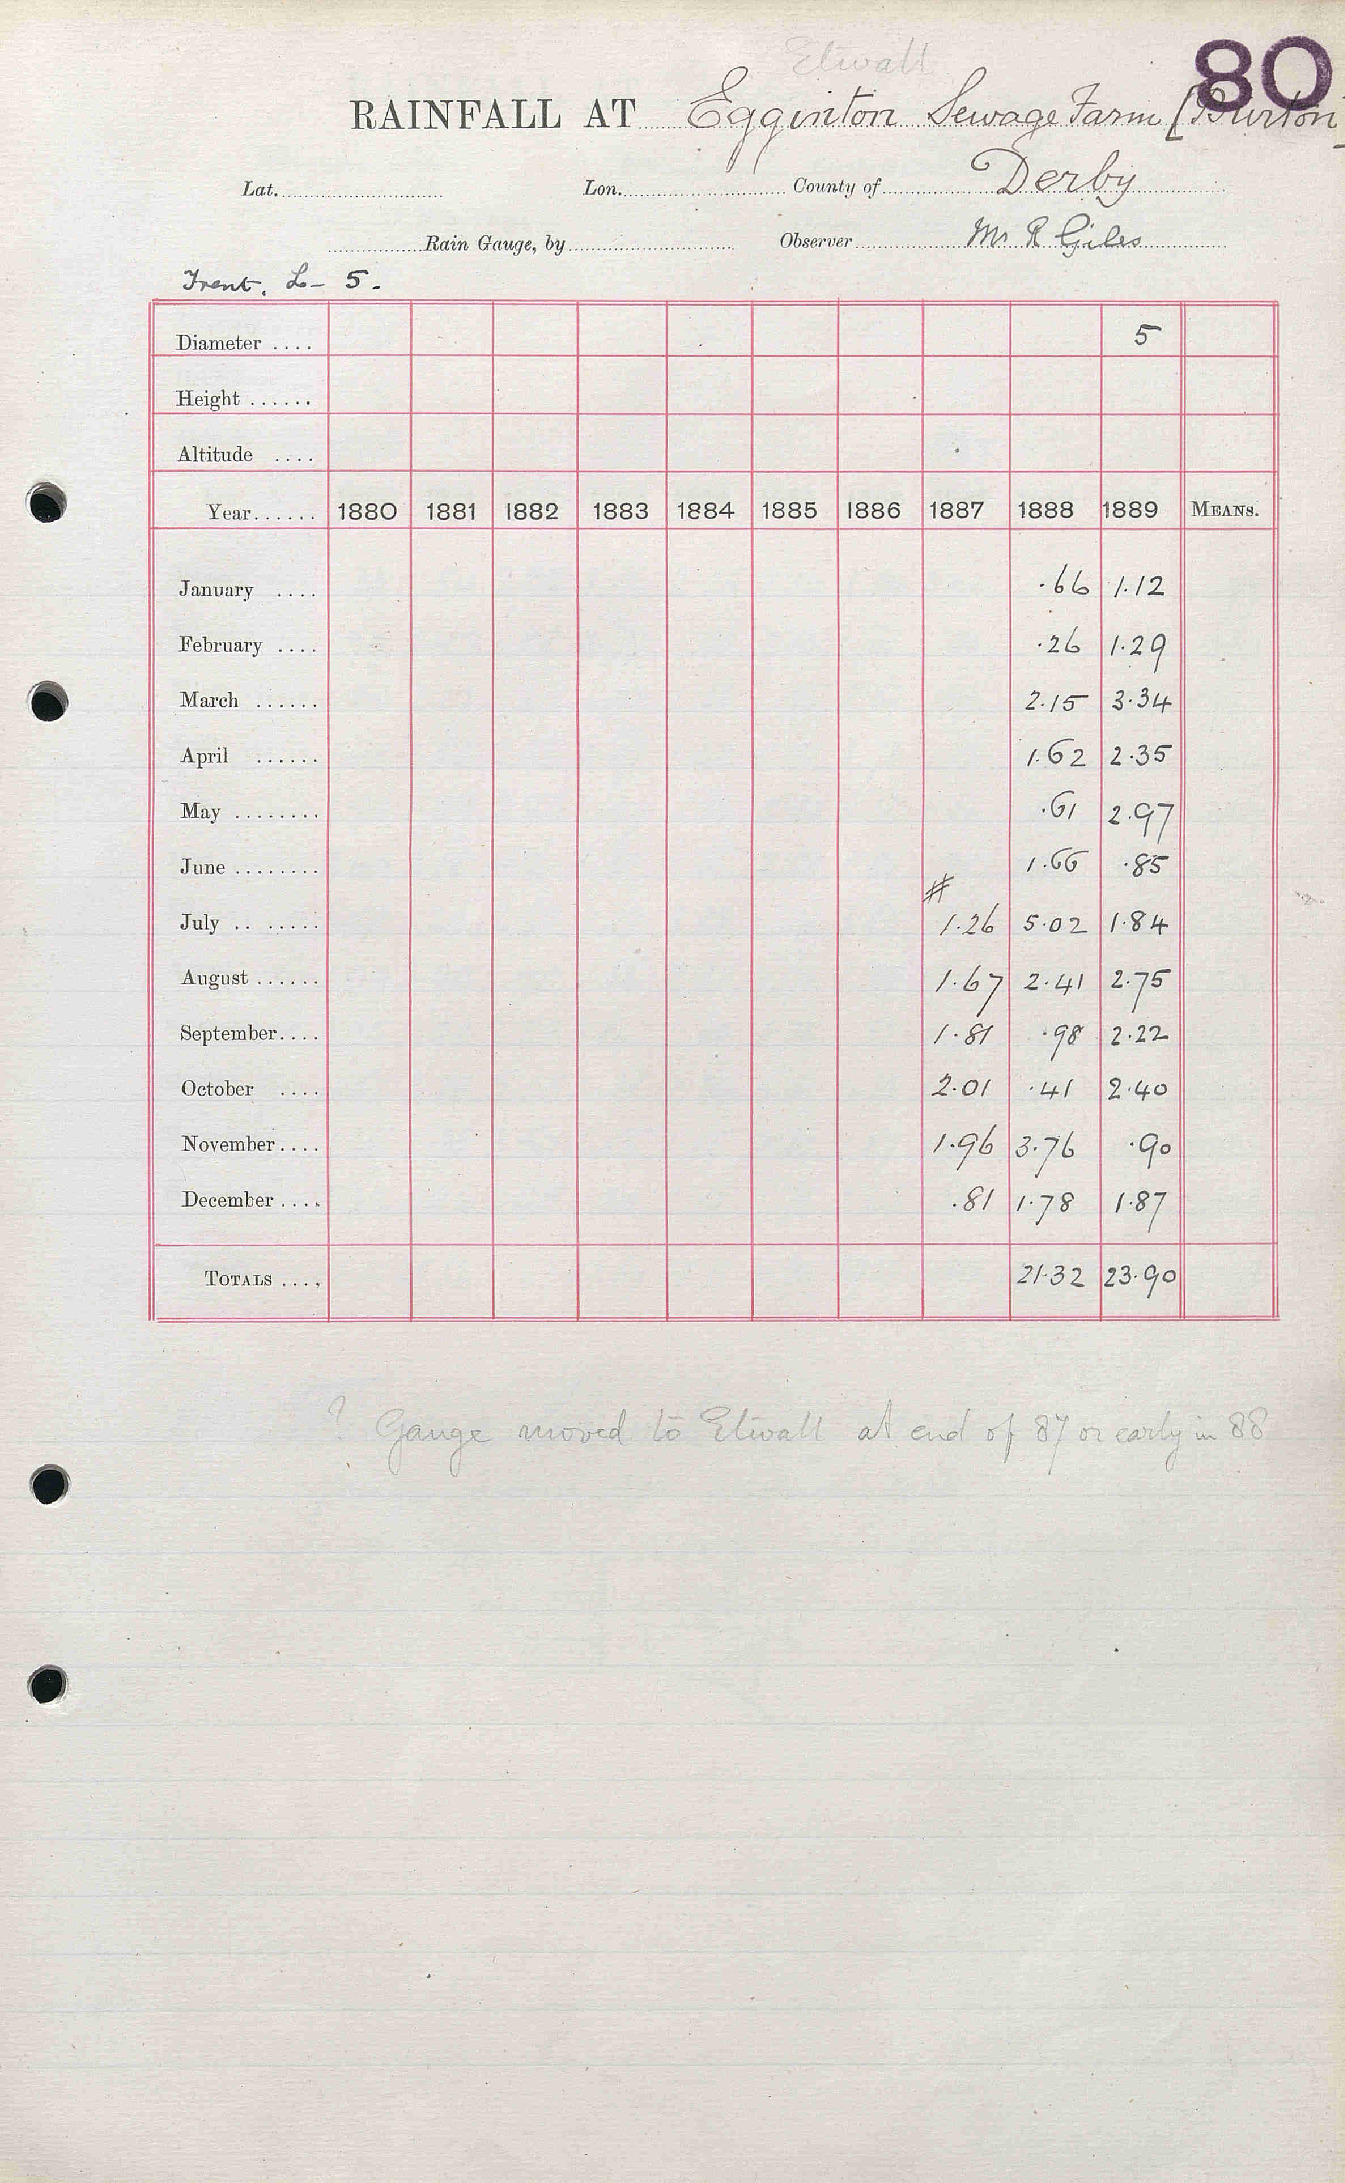 80
Etwall
RAINFALL AT Egginton Sewage Farm [Burton]
Lat. Lon. County of Derby
Rain Gauge, by Observer Mr R Giles
Trent. L- 5.
Diameter .... 5
Height ......
Altitude ....
Year...... 1880 1881 1882 1883 1884 1885 1886 1887 1888 1889 MEANS.
January .... .66 1.12
February .... .26 1.29
March ...... 2.15 3.34
April ...... 1.62 2.35
May ........ .61 2.97
June ........ 1.66 .85
#
July .. ...... 1.26 5.02 1.84
August ...... 1.67 2.41 2.75
September.... 1.81 .98 2.22
October .... 2.01 .41 2.40
November.... 1.96 3.76 .90
December .... .81 1.78 1.87
TOTALS .... 21.32 23.90
? Gauge moved to Etwall at end of 87 or early in 88